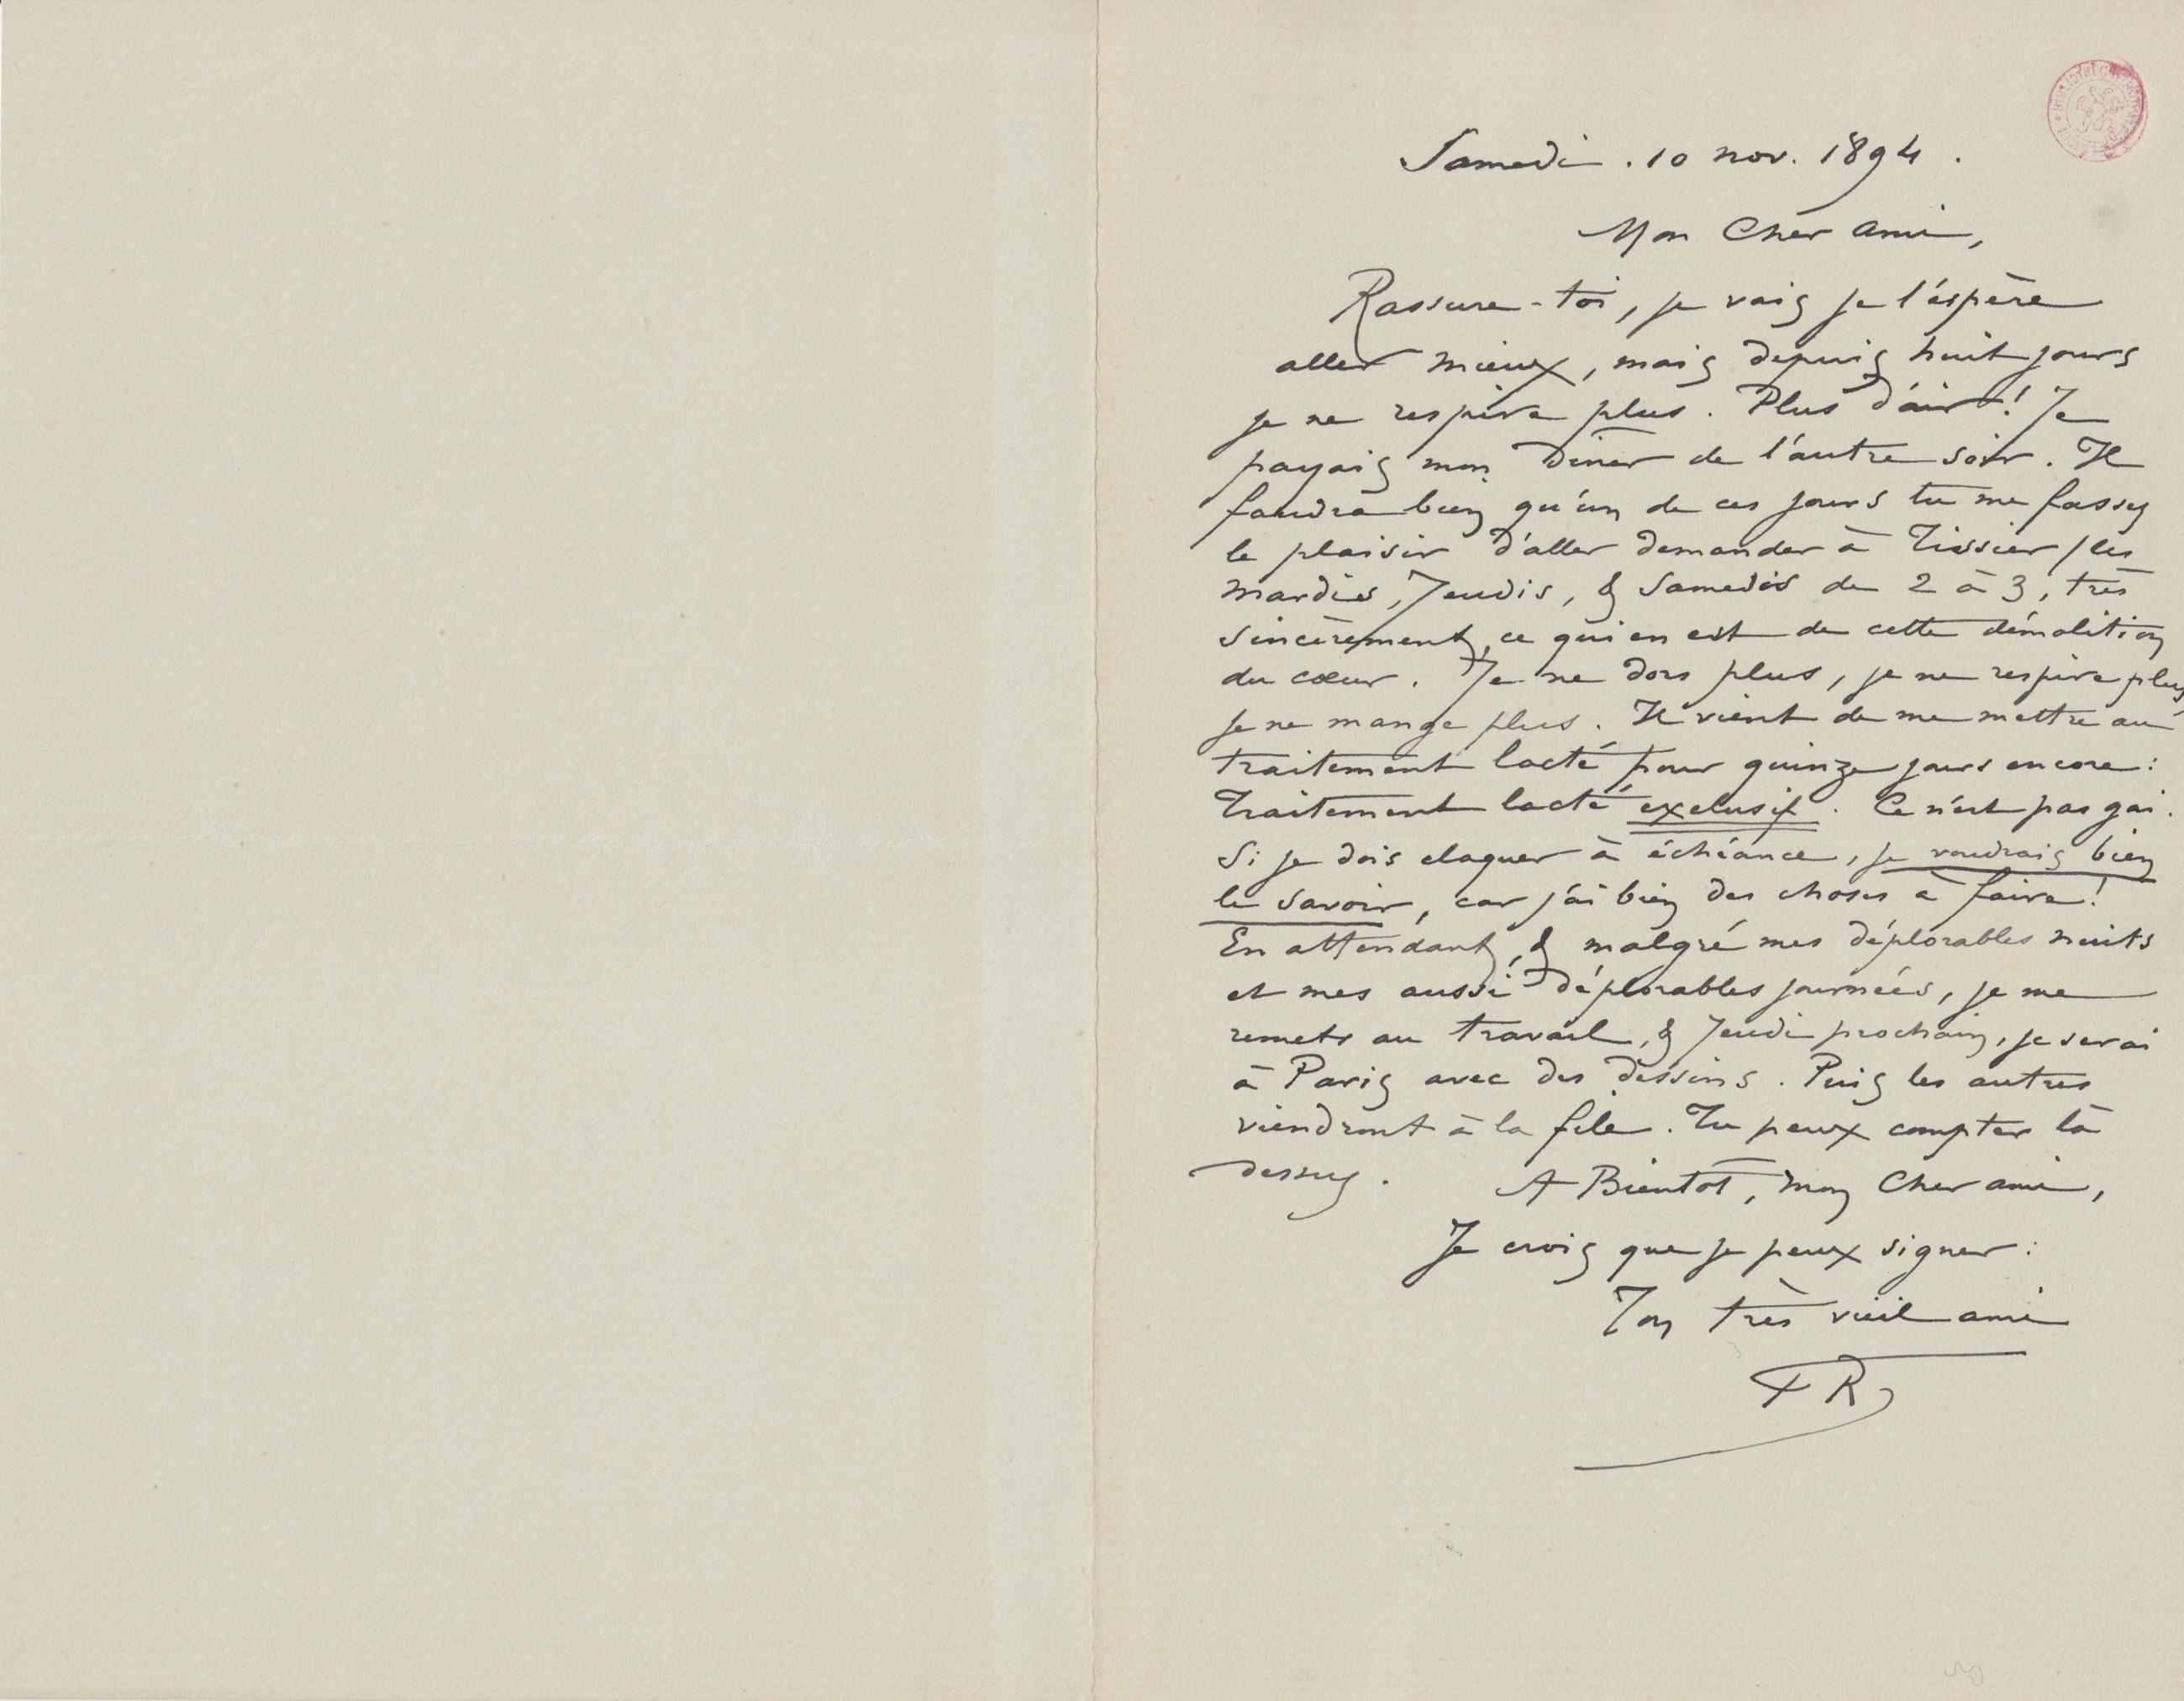 Samedi . 10 nov. 1894 .
Mon Cher ami,
Rassure-toi, je vais je l'éspère
aller mieux, mais depuis huit jours
je ne respire plus. Plus d'air! Je
payais mon dîner de l'autre soir. Il
faudra bien qu'un de ces jours tu me fasses
le plaisir d'aller demander à Tissier (les
mardis, Jeudis, & Samedis de 2 à 3, très
sincèrement, ce qui en est de cette démolition
du cœur. Je ne dors plus, je ne respire plus
je ne mange plus. Il vient de me mettre au
traitement lacté pour quinze jours encore:
Traitement lacté exclusif. Ce n'est pas gai.
Si je dois claquer à échéance, je voudrais bien
le savoir, car j'ai bien des choses à faire!
En attendant, & malgré mes déplorables nuits
et mes aussi déplorables journées, je me
remets au travail, & Jeudi prochain, je serai
à Paris avec des dessins. Puis les autres
viendront à la file. Tu peux compter là
dessus. A Bientôt, mon Cher ami,
Je crois que je peux signer:
Ton très vieil ami
FR